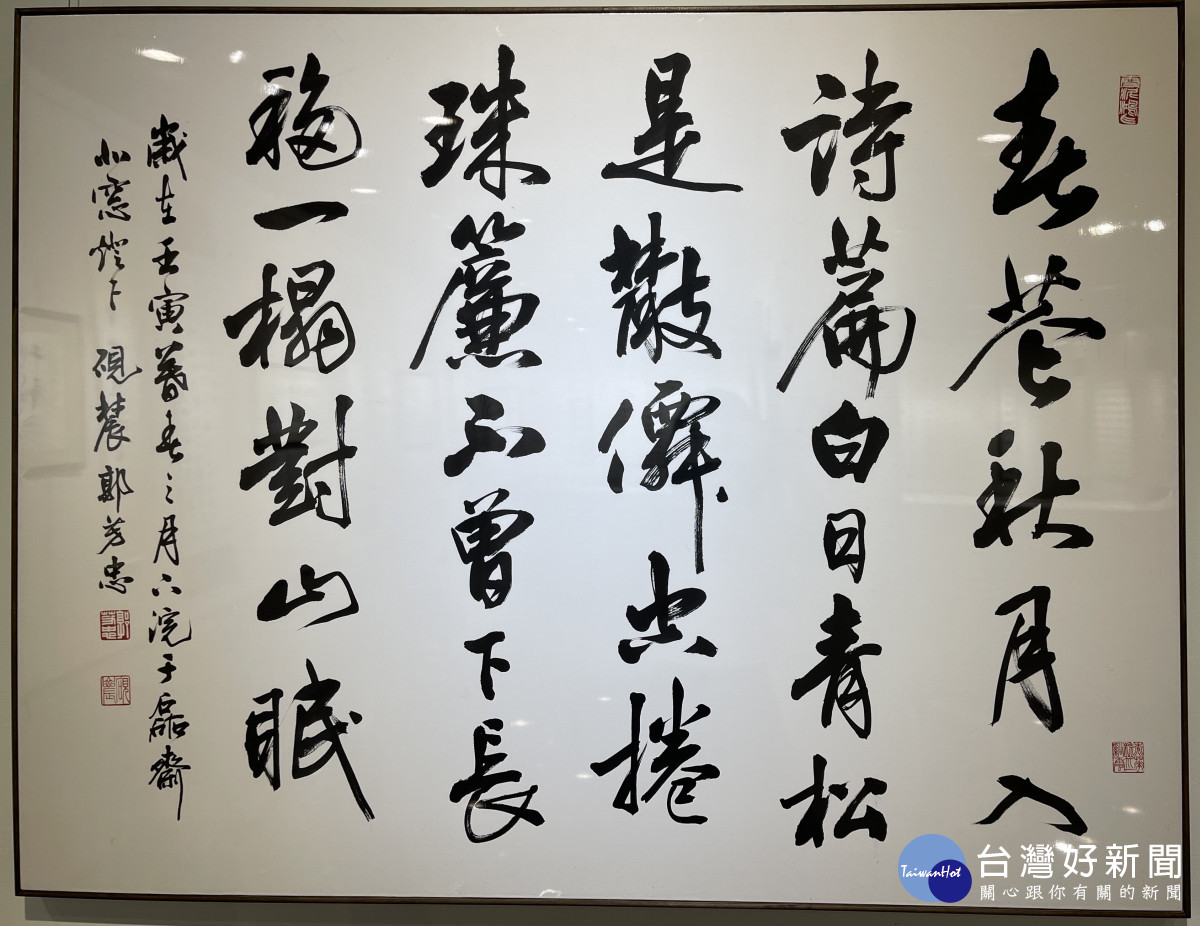 春花秋月入
詩篇白日青松
是散僊空捲
珠簾不曾下長
移一榻對山眠
歲在壬寅暮春三月下浣于磊齋
北窓燈下 硯農郭芳忠
TaiwanHot
台灣好新聞
關心跟你有關的新聞